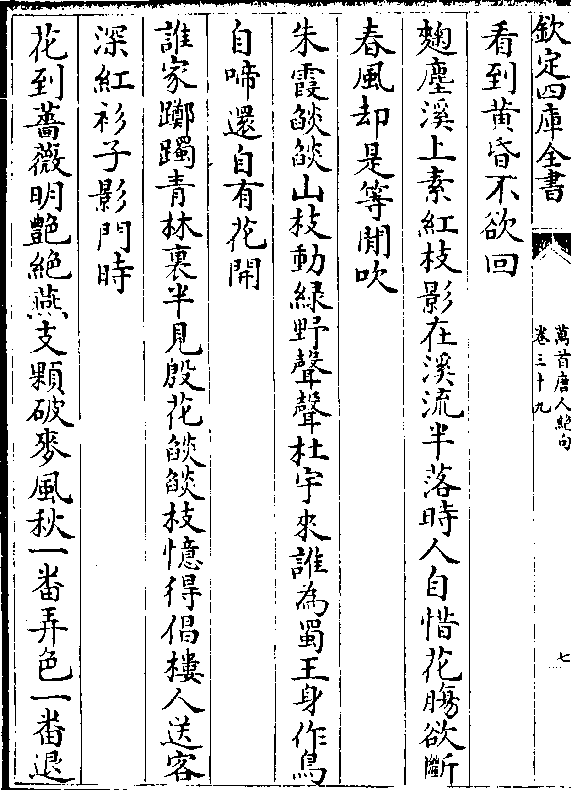 欽定四庫全書
萬首唐人絶句
卷三十九
七
看到黄昏不欲回
麴塵溪上素紅枝影在溪流半落時人自惜花腸欲斷
春風却是等閒吹
朱霞燄燄山枝動綠野聲聲杜宇來誰為蜀王身作鳥
自啼還自有花開
誰家躑躅青林裏半見殷花燄燄枝憶得倡樓人送客
深紅衫子影門時
花到薔薇明艷絶燕支顆破麥風秋一番弄色一番退